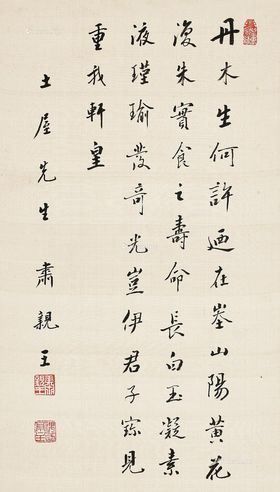 丹木生何許迺在峚山陽黃花
復朱實食之壽命長白玉凝素
液瑾瑜發奇光豈伊君子寳見
重我軒皇
土屋先生 肅親王